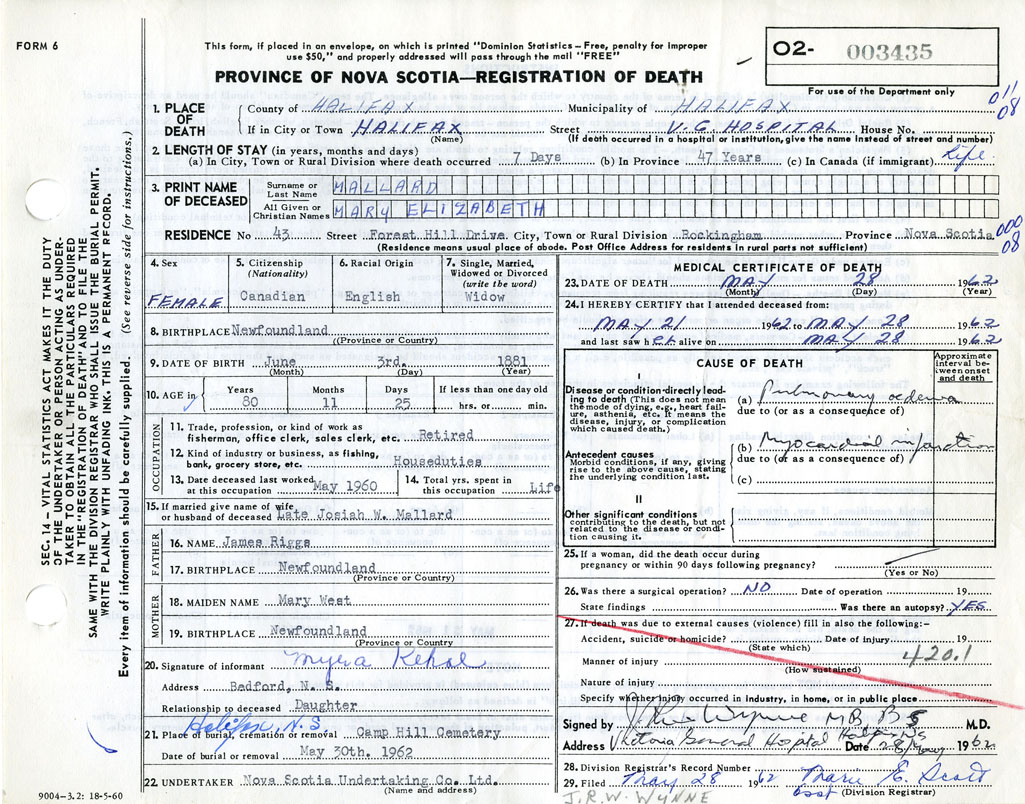 FORM 6
This form, if placed in an envelope, on which is printed "Dominion Statistics – Free, penalty for improper
use $50," and properly addressed will pass through the mail "FREE"
PROVINCE OF NOVA SCOTIA—REGISTRATION OF DEATH
O2- 003435
For use of the Department only
011
08
1. PLACE OF DEATH
County of HALIFAX Municipality of HALIFAX
If in City or Town HALIFAX Street V.G. HOSPITAL House No.
(Name) (If death occurred in a hospital or institution, give the name instead of street and number)
2. LENGTH OF STAY (in years, months and days)
(a) In City, Town or Rural Division where death occurred 7 Days (b) In Province 47 Years (c) In Canada (if immigrant) Life
3. PRINT NAME OF DECEASED
Surname or Last Name MALLARD
All Given or Christian Names MARY ELIZABETH
RESIDENCE No 43 Street Forest Hill Drive. City, Town or Rural Division Rockingham Province Nova Scotia
000
08
(Residence means usual place of abode. Post Office Address for residents in rural parts not sufficient)
4. Sex FEMALE
5. Citizenship (Nationality) Canadian
6. Racial Origin English
7. Single, Married, Widowed or Divorced (write the word) Widow
8. BIRTHPLACE Newfoundland
(Province or Country)
9. DATE OF BIRTH June 3rd. 1881
(Month) (Day) (Year)
10. AGE in Years 80 Months 11 Days 25 If less than one day old hrs. or min.
OCCUPATION
11. Trade, profession, or kind of work as
fisherman, office clerk, sales clerk, etc. Retired
12. Kind of industry or business, as fishing,
bank, grocery store, etc. Houseduties
13. Date deceased last worked
at this occupation May 1960
14. Total yrs. spent in
this occupation Life
15. If married give name of wife
or husband of deceased Late Josiah W. Mallard
FATHER
16. NAME James Riggs
17. BIRTHPLACE Newfoundland
(Province or Country)
MOTHER
18. MAIDEN NAME Mary West
19. BIRTHPLACE Newfoundland
(Province or Country)
20. Signature of informant Myra Kehoe
Address Bedford, N. S.
Relationship to deceased Daughter
Halifax, N.S
21. Place of burial, cremation or removal Camp Hill Cemetery
Date of burial or removal May 30th. 1962
22. UNDERTAKER Nova Scotia Undertaking Co. Ltd.
(Name and address)
9004-3.2: 18-5-60
SEC. 14 – VITAL STATISTICS ACT MAKES IT THE DUTY
OF THE UNDERTAKER OR PERSON ACTING AS UNDER-
TAKER TO OBTAIN ALL THE PARTICULARS REQUIRED
IN THE "REGISTRATION OF DEATH" AND TO FILE THE
SAME WITH THE DIVISION REGISTRAR WHO SHALL ISSUE THE BURIAL PERMIT.
WRITE PLAINLY WITH UNFADING INK. THIS IS A PERMANENT RECORD.
Every item of information should be carefully supplied. (See reverse side for instructions.)
MEDICAL CERTIFICATE OF DEATH
23. DATE OF DEATH MAY 28 1962
(Month) (Day) (Year)
24. I HEREBY CERTIFY that I attended deceased from:
MAY 21 1962 to MAY 28 1962
and last saw her alive on MAY 28 1962
CAUSE OF DEATH
Approximate interval between onset and death
I
Disease or condition directly lead-
ing to death (This does not mean
the mode of dying, e.g., heart fail-
ure, asthenia, etc. It means the
disease, injury, or complication
which caused death.)
(a) Pulmonary oedema
due to (or as a consequence of)
Antecedent causes
Morbid conditions, if any, giving
rise to the above cause, stating
the underlying condition last.
(b) Myocardial infarction
due to (or as a consequence of)
(c)
II
Other significant conditions
contributing to the death, but not
related to the disease or condi-
tion causing it.
25. If a woman, did the death occur during
pregnancy or within 90 days following pregnancy?
(Yes or No)
26. Was there a surgical operation? NO Date of operation 19
State findings Was there an autopsy? YES
27. If death was due to external causes (violence) fill in also the following:-
Accident, suicide or homicide? Date of injury 19
(State which)
Manner of injury 420.1
(How sustained)
Nature of injury
Specify whether injury occurred in industry, in home, or in public place
Signed by J. R. W. Wynne MB BS M.D.
Address Victoria General Hospital Halifax NS Date 28/May 1962
28. Division Registrar's Record Number
29. Filed May 28 1962 Marie E. Scott
asst (Division Registrar)
J.R.W. WYNNE